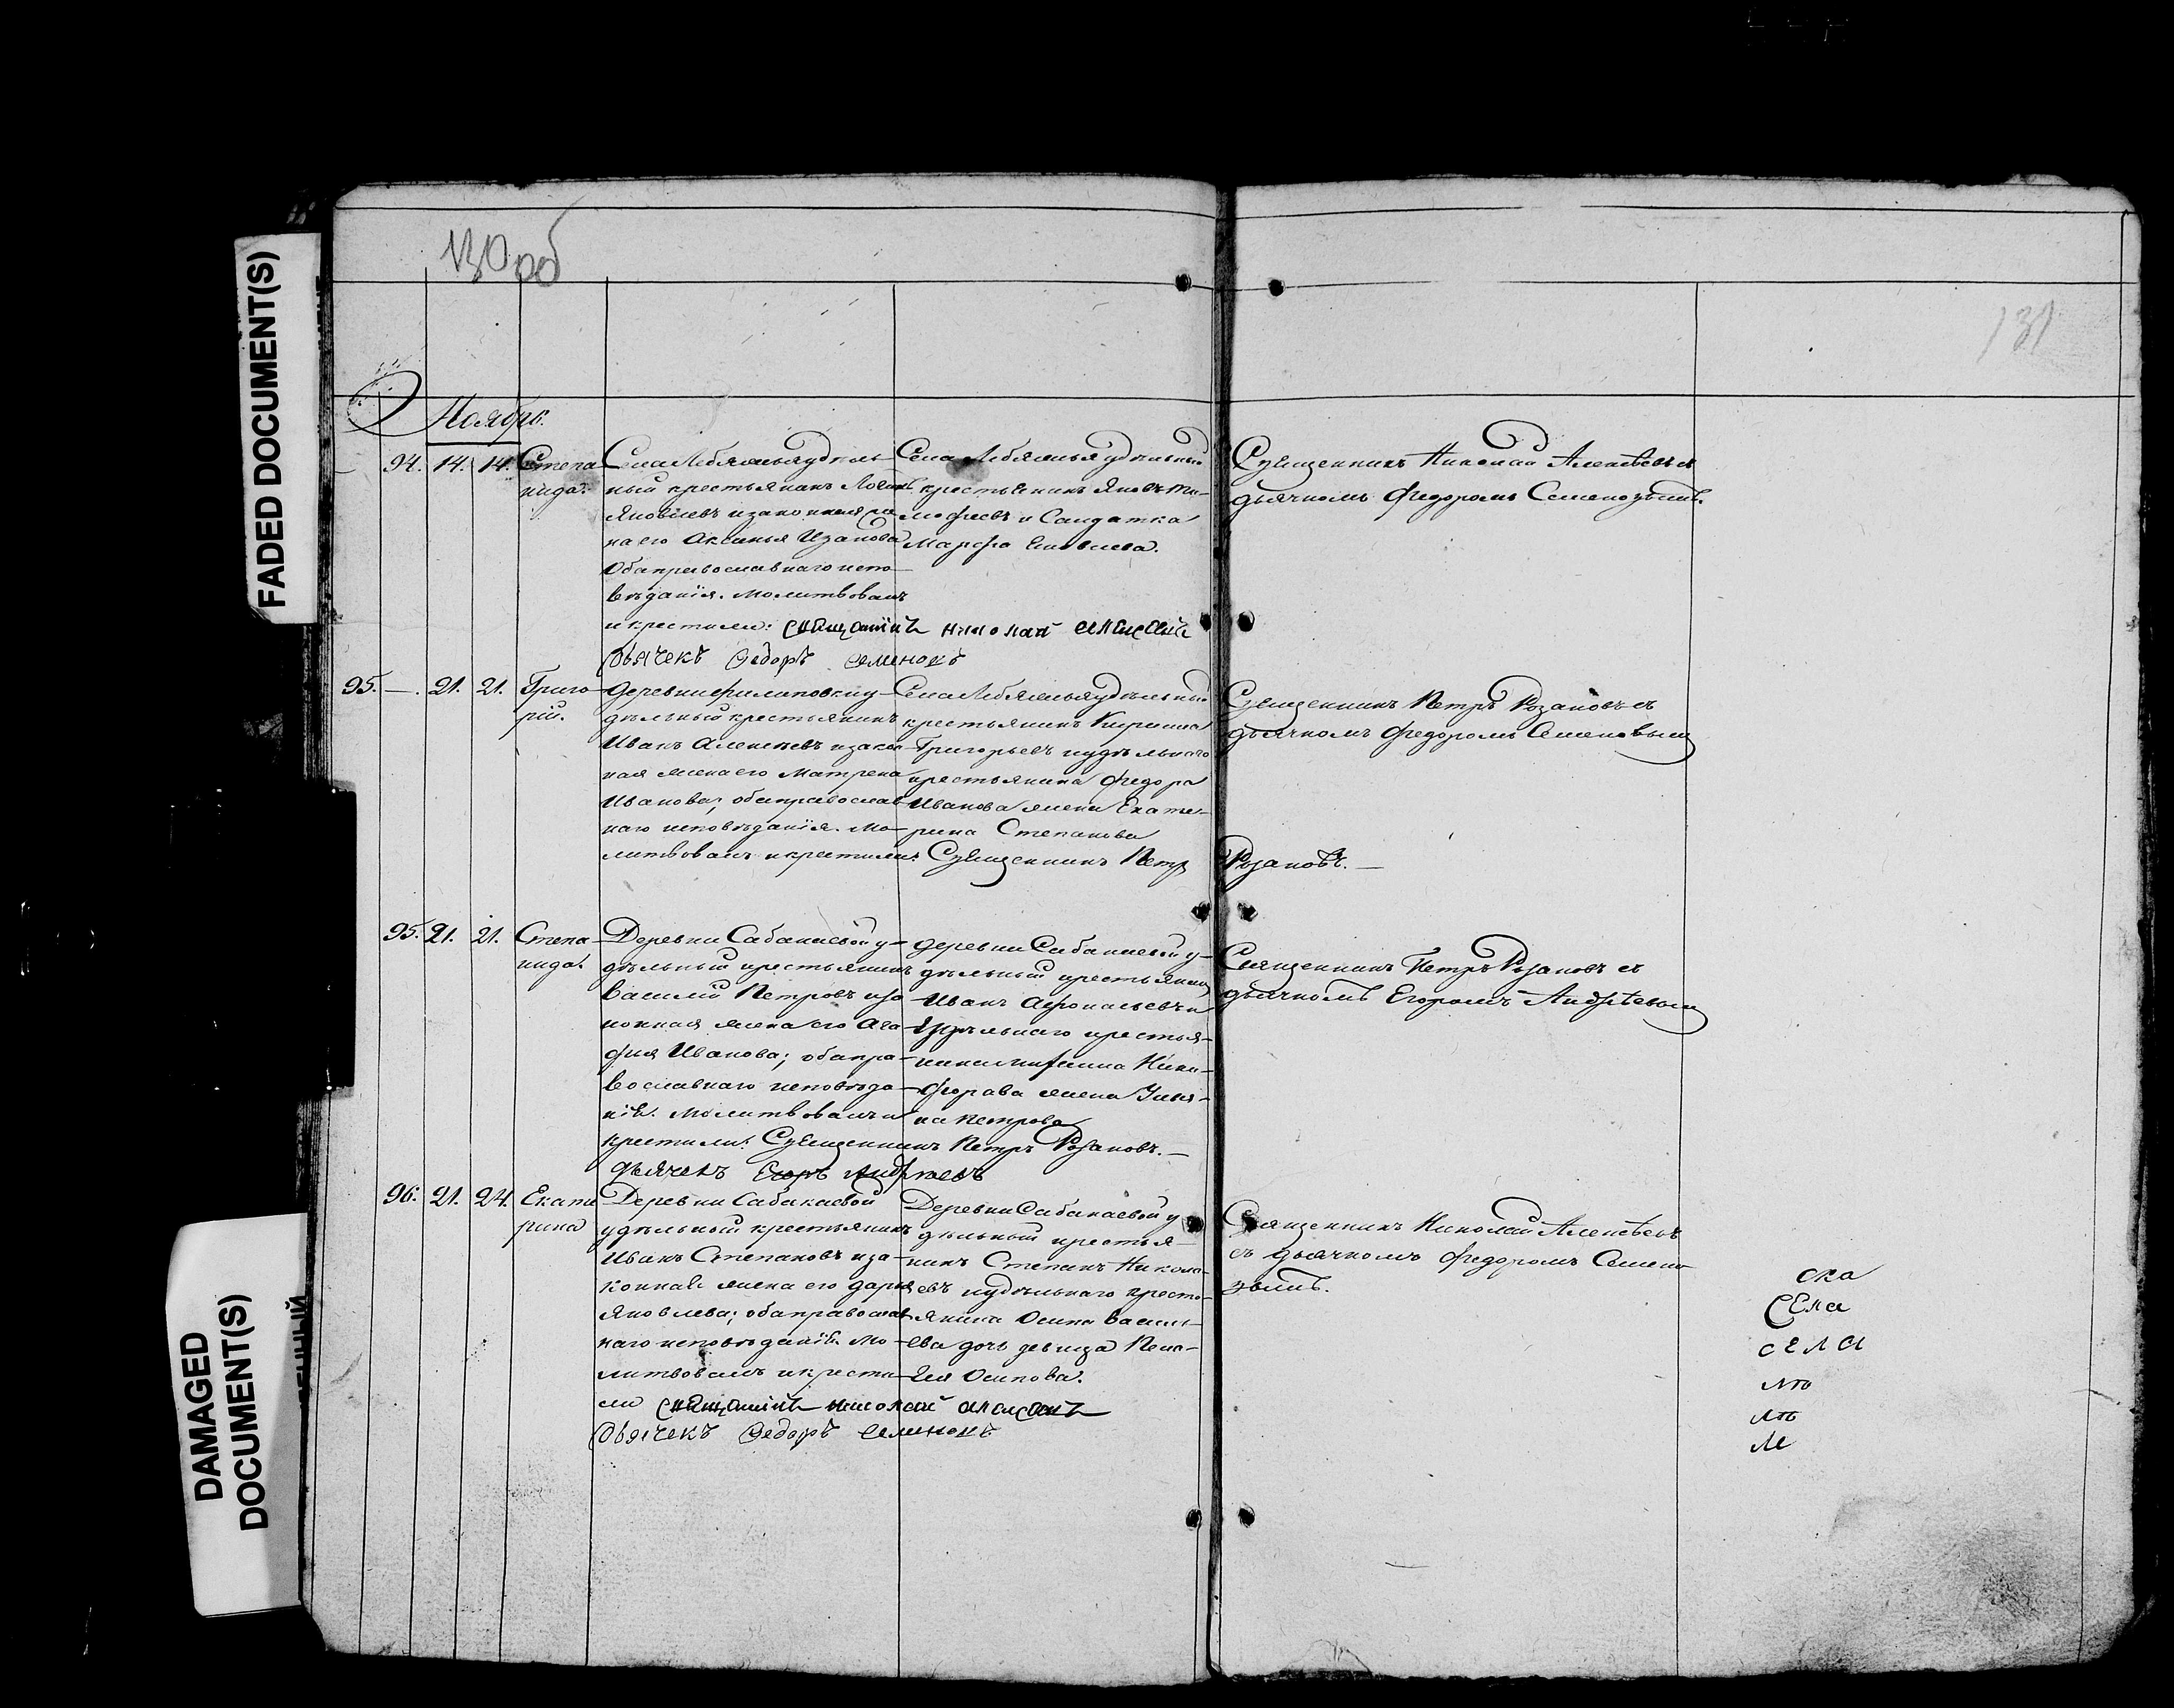 FADED DOCUMENT(S)
DAMAGED
DOCUMENT(S)
130 об
131
Ноябрь.
94. 14. 14. Степа-
нида.
Села Лебяжья удѣль-
ный крестьянинъ Логинъ
Яковлевъ и законная же-
на его Аксинья Иванова
Оба православнаго испо-
вѣданія. Молитвовалъ
и крестили: священникъ николай алексѣевъ
Дьячекъ Ѳедоръ Семеновъ
Села Лебяжья удѣльный
крестьянинъ Яковъ Ти-
мофѣевъ и Солдатка
Марфа Яковлева.
Священникъ Николай Алексѣевъ съ
дьячкомъ Федоромъ Семеновымъ.
95. —. 21. 21. Григо-
рій.
Деревни Филиповки у-
дѣльный крестьянинъ
Иванъ Алексѣевъ и закон-
ная жена его Матрена
Иванова; оба православ-
наго исповѣданія. Мо-
литвовалъ и крестили: Священникъ Петръ Розановъ. —
Села Лебяжья удѣльный
крестьянинъ Кирилла
Григорьевъ и удѣльнаго
крестьянина Федора
Иванова жена Екате-
рина Степанова
Священникъ Петръ Розановъ съ
дьячкомъ Федоромъ Семеновымъ
95. 21. 21. Степа-
нида.
Деревни Сабакаевой у-
дѣльный крестьянинъ
Василій Петровъ и за-
конная жена его Ага-
фья Иванова; оба пра-
вославнаго исповѣда-
нія. Молитвовалъ и
крестили: Священникъ Петръ Розановъ. —
дьячекъ Егоръ Андреевъ
деревни Сабакаевой у-
дѣльный крестьянинъ
Иванъ Афонасьевъ и
Удѣльнаго крестья-
нина Ники-
форова жена Улья-
на Петрова
Священникъ Петръ Розановъ съ
дьячкомъ Егоромъ Андрѣевымъ
96. 21. 24. Екате
рина
Деревни Сабакаевой
удѣльный крестьянинъ
Иванъ Степановъ и за-
конная жена его Дарья
Яковлева; оба православ-
наго исповѣданія. Мо-
литвовалъ и крести-
ли священникъ николай алексѣевъ
Дьячекъ Ѳедоръ Семеновъ
Деревни Сабакаевой у-
дѣльный крестья-
нинъ Степанъ Никола-
евъ и удѣльнаго кресть-
янина Осипа Василь-
ева дочь девица Пела-
гея Осипова.
Священникъ Николай Алексѣевъ
съ дьячкомъ Федоромъ Семено-
вымъ.
ска
Села
села
лѣ
лѣ
Ле